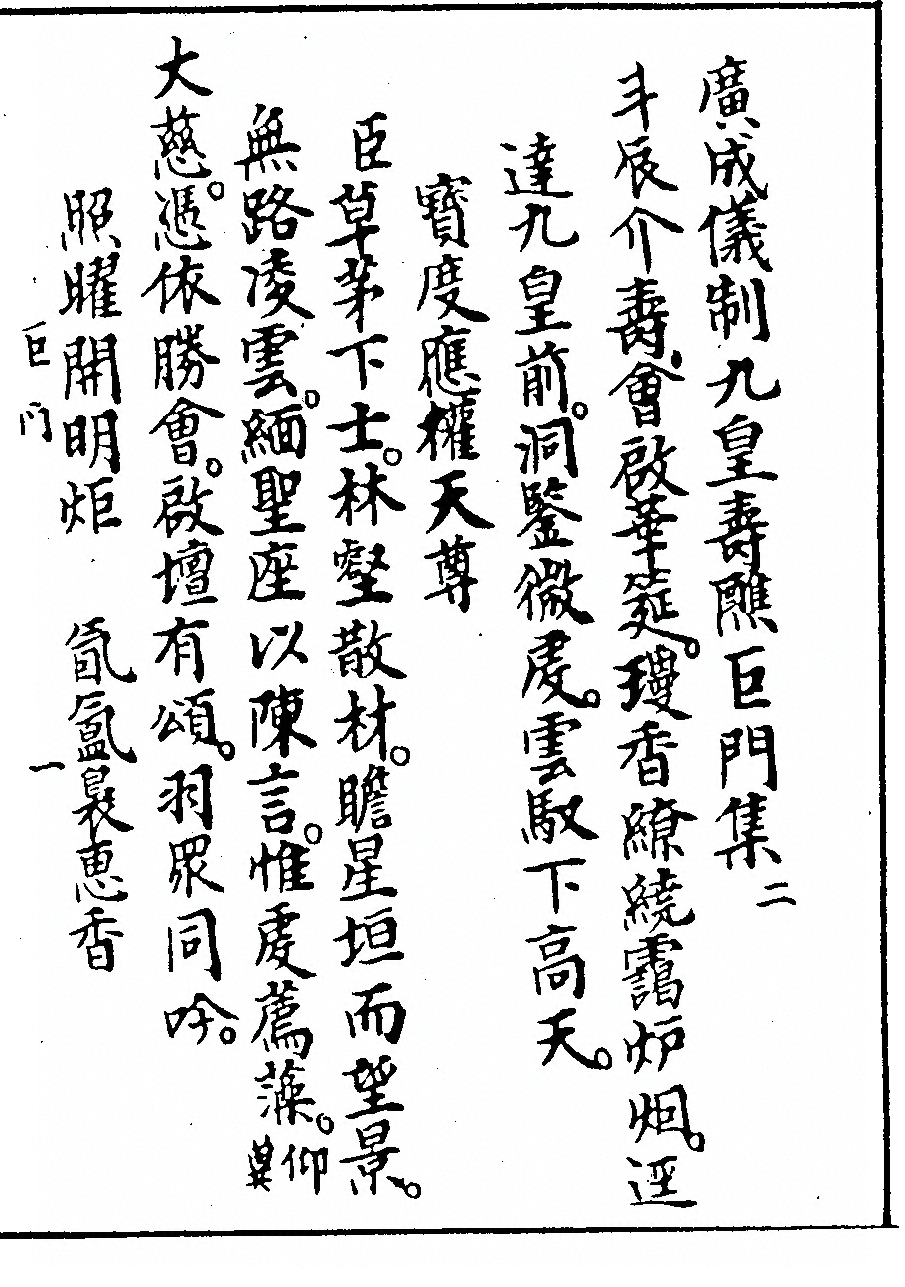 廣成儀制九皇壽醮巨門集二
斗辰介壽。會啟華筵。瓊香繚繞靄炉烟。逕
達九皇前。洞鑒微虔。雲馭下高天。
寶度應權天尊
臣草茅下士。林壑散材。瞻星垣而望景。
無路凌雲。緬聖座以陳言。惟虔薦藻。仰冀
大慈。憑依勝會。啟壇有頌。羽眾同吟。
照曜開明炬　氤氳裊惠香
巨門　一